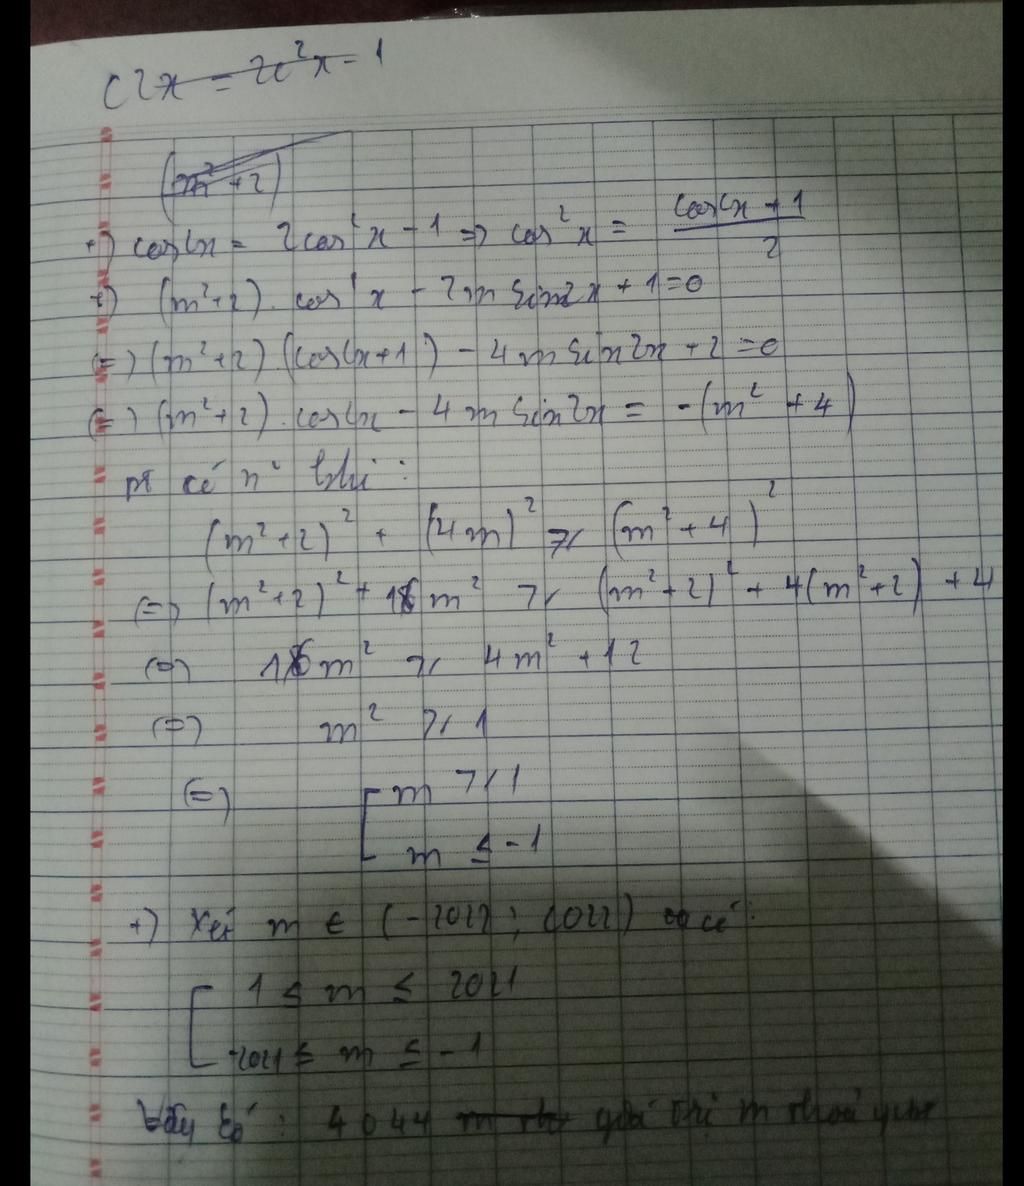 c2x = 2c²x - 1
(m² + 2)
+) cos2x = 2cos²x - 1 => cos²x = \frac{cos2x + 1}{2}
+) (m²+2). cos²x - 2m sin2x + 1 = 0
(=) (m²+2) (cos2x+1) - 4m sin2x + 2 = 0
(=) (m²+2). cos2x - 4m sin2x = -(m² + 4)
pt có n⁰ khi :
(m²+2)² + (4m)² ≥ (m²+4)²
(=) (m²+2)² + 16m² ≥ (m²+2)² + 4(m²+2) + 4
(=) 16m² ≥ 4m² + 12
(=) m² ≥ 1
(=) [ m ≥ 1
m ≤ -1
+) Xét m ∈ (-2022 ; 2022) có :
[ 1 ≤ m ≤ 2021
-2021 ≤ m ≤ -1
Vậy có : 4044 giá trị m thoả